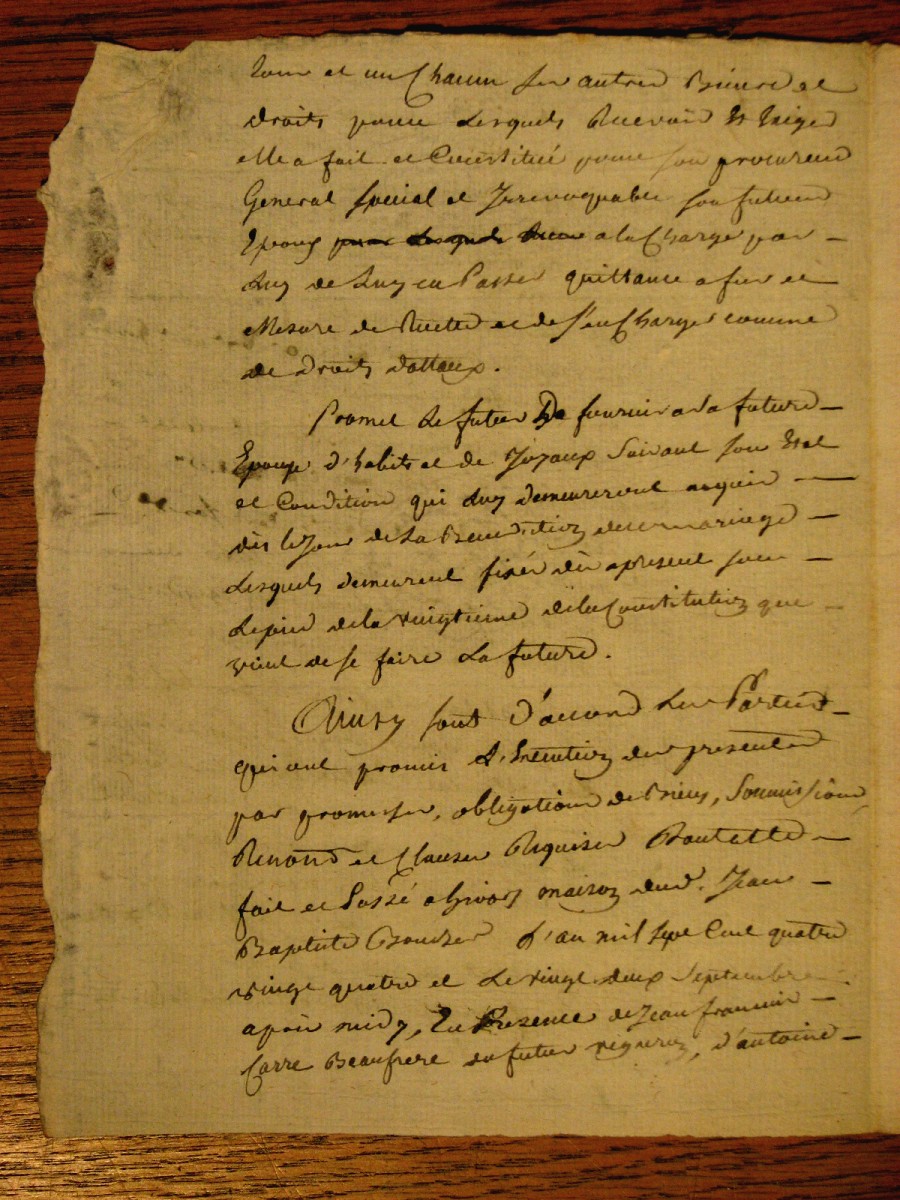 tous et un Chacun ses autres Biens et
droits pour lesquels Recevoir Et Exiger
elle a fait et Constitué pour son procureur
General special et Irrevoquable son futeur
Epoux pour lesquels a la Charge par
Luy de Luy en Passer quittance a fur et
Mesure de Recette et de s'en Charger comme
de droits dottaux.
Promet le futur De fournir a sa future
Epouse d'habits et de Joyaux Suivant son Etat
et Condition qui Luy demeureront acquis
dès le Jour de la Benediction de ce mariage
Lesquels demeurent fixés dès apresent sous
le pied de la vingtieme de la Constitution que
vient de se faire la future.
Ainsy sont d'accord les Parties
qui ont promis l'Execution des presentes
par promesses, obligations de Biens, Soumissions
Renons et Clauses Requises
fait et Passé a maison dud. Jean
Baptiste L'an mil sept Cent quatre
vingt quatre et le vingt deux Septembre
après midy, En Presence de Jean francois
Carre Beaufrere du futur d'antoine